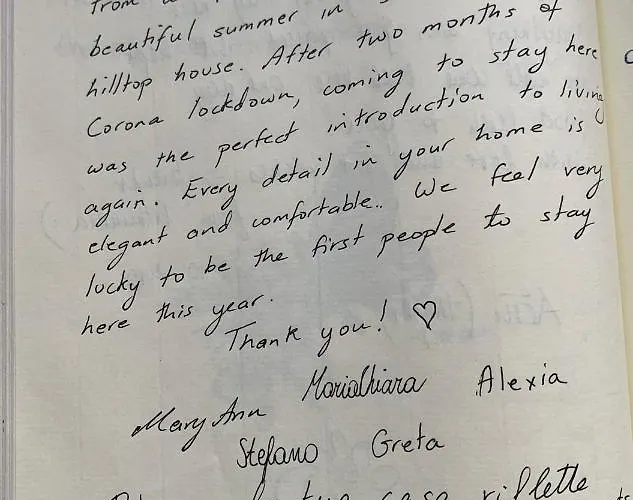 from a
beautiful summer in
hilltop house. After two months of
Corona lockdown, coming to stay here
was the perfect introduction to living
again. Every detail in your home is
elegant and comfortable.. We feel very
lucky to be the first people to stay
here this year.
Thank you! ♡
MaryAnn MariaChiara Alexia
Stefano Greta
tua casa riflette